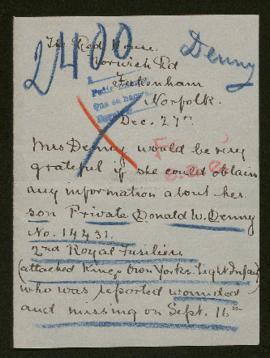 2400
Denny
The Red House
Norwich Rd
Fakenham
Norfolk.
Dec. 27th
Mrs Denny would be very
grateful if she could obtain
any information about her
son Private Donald W. Denny
No. 14431.
2nd Royal Fusiliers
(attached King's Own Yorks. Light Infan)
who was reported wounded
and missing on Sept. 16th